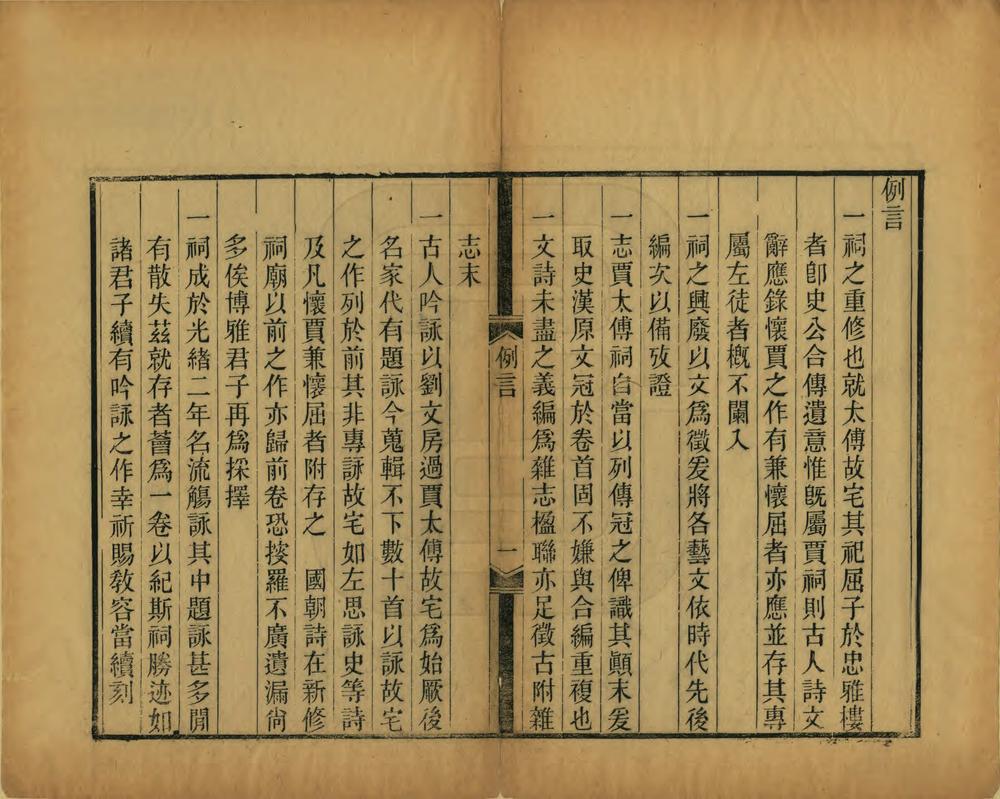 例言
一祠之重修也就太傅故宅其祀屈子於忠雅樓
者卽史公合傳遺意惟旣屬賈祠則古人詩文
辭應錄懷賈之作有兼懷屈者亦應並存其專
屬左徒者槪不闌入
一祠之興廢以文爲徵爰將各藝文依時代先後
編次以備攷證
一志賈太傅祠自當以列傳冠之俾識其顚末爰
取史漢原文冠於卷首固不嫌與合編重複也
一文詩未盡之義編爲雜志楹聯亦足徵古附雜
例言
一
志末
一古人吟詠以劉文房過賈太傅故宅爲始厥後
名家代有題詠今蒐輯不下數十首以詠故宅
之作列於前其非專詠故宅如左思詠史等詩
及凡懷賈兼懷屈者附存之 國朝詩在新修
祠廟以前之作亦歸前卷恐搜羅不廣遺漏尙
多俟博雅君子再爲採擇
一祠成於光緒二年名流觴詠其中題詠甚多閒
有散失茲就存者薈爲一卷以紀斯祠勝迹如
諸君子續有吟詠之作幸祈賜敎容當續刻